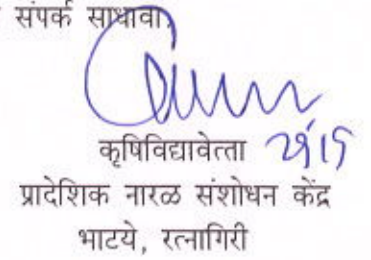 संपर्क साधावा.
कृषिविद्यावेत्ता
प्रादेशिक नारळ संशोधन केंद्र
भाटये, रत्नागिरी